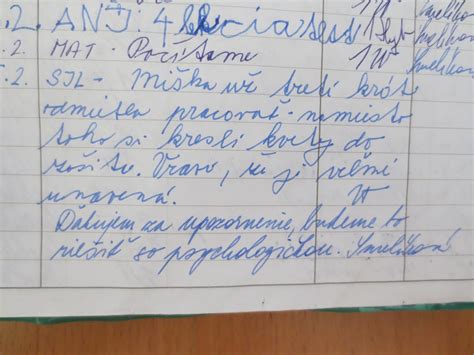 .2. ANJ. 4 lekcia test
.2. MAT. Počítame 1
.2 SJL - Miška už tretí krát
odmietla pracovať - namiesto
toho si kreslí kvety do
zošitu. Vraví, že je veľmi
unavená.
Ďakujem za upozornenie, budeme to
riešiť so psychologičkou. Smelíková